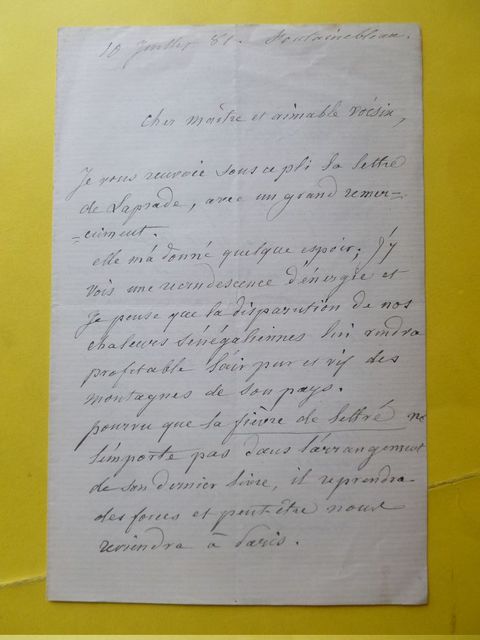 18 Juillet 81. Fontainebleau.
cher maître et aimable voisin,
Je vous renvoie sous ce pli la lettre
de Laprade, avec un grand remer-
-ciment.
elle m'a donné quelque espoir; J'y
vois une recrudescence d'énergie et
Je pense que la disparution de nos
chaleurs Sénégaliennes lui rendra
profitable l'air pur et vif des
montagnes de son pays.
pourvu que la fièvre de lettré ne
l'emporte pas dans l'arrangement
de son dernier livre, il reprendra
des forces et peut-être nous
reviendra à Paris.